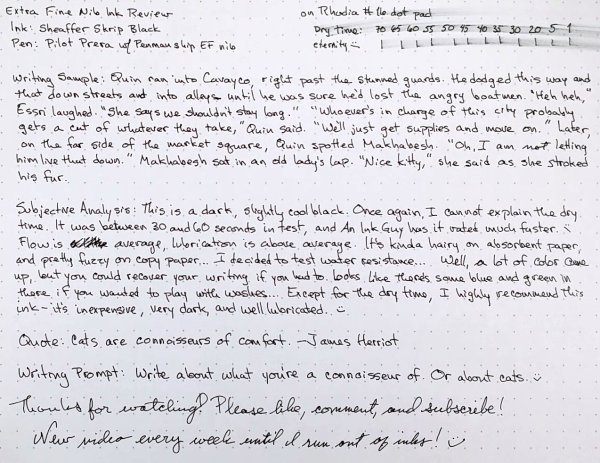 Extra Fine Nib Ink Review
on Rhodia #16 dot pad
Ink: Sheaffer Skrip Black
Dry Time: 70 65 60 55 50 45 40 35 30 20 5 1
Pen: Pilot Prera w/ Penmanship EF nib
eternity
Writing Sample: Quin ran into Cavayco, right past the stunned guards. He dodged this way and
that down streets and into alleys until he was sure he'd lost the angry boatmen. "Heh heh,"
Essri laughed. "She says we shouldn't stay long." "Whoever's in charge of this city probably
gets a cut of whatever they take," Quin said. "We'll just get supplies and move on." Later,
on the far side of the market square, Quin spotted Makhabesh. "Oh, I am not letting
him live that down." Makhabesh sat in an old lady's lap. "Nice kitty," she said as she stroked
his fur.
Subjective Analysis: This is a dark, slightly cool black. Once again, I cannot explain the dry
time. It was between 30 and 60 seconds in test, and An Ink Guy has it rated much faster. :)
Flow is average, lubrication is above average. It's kinda hairy on absorbent paper,
and pretty fuzzy on copy paper... I decided to test water resistance.... Well, a lot of color came
up, but you could recover your writing if you had to. Looks like there's some blue and green in
there if you wanted to play with washes.... Except for the dry time, I highly recommend this
ink - it's inexpensive, very dark, and well lubricated. :)
Quote: Cats are connoisseurs of comfort. —James Herriot
Writing Prompt: Write about what you're a connoisseur of. Or about cats. :)
Thanks for watching! Please like, comment, and subscribe!
New video every week until I run out of inks! :)